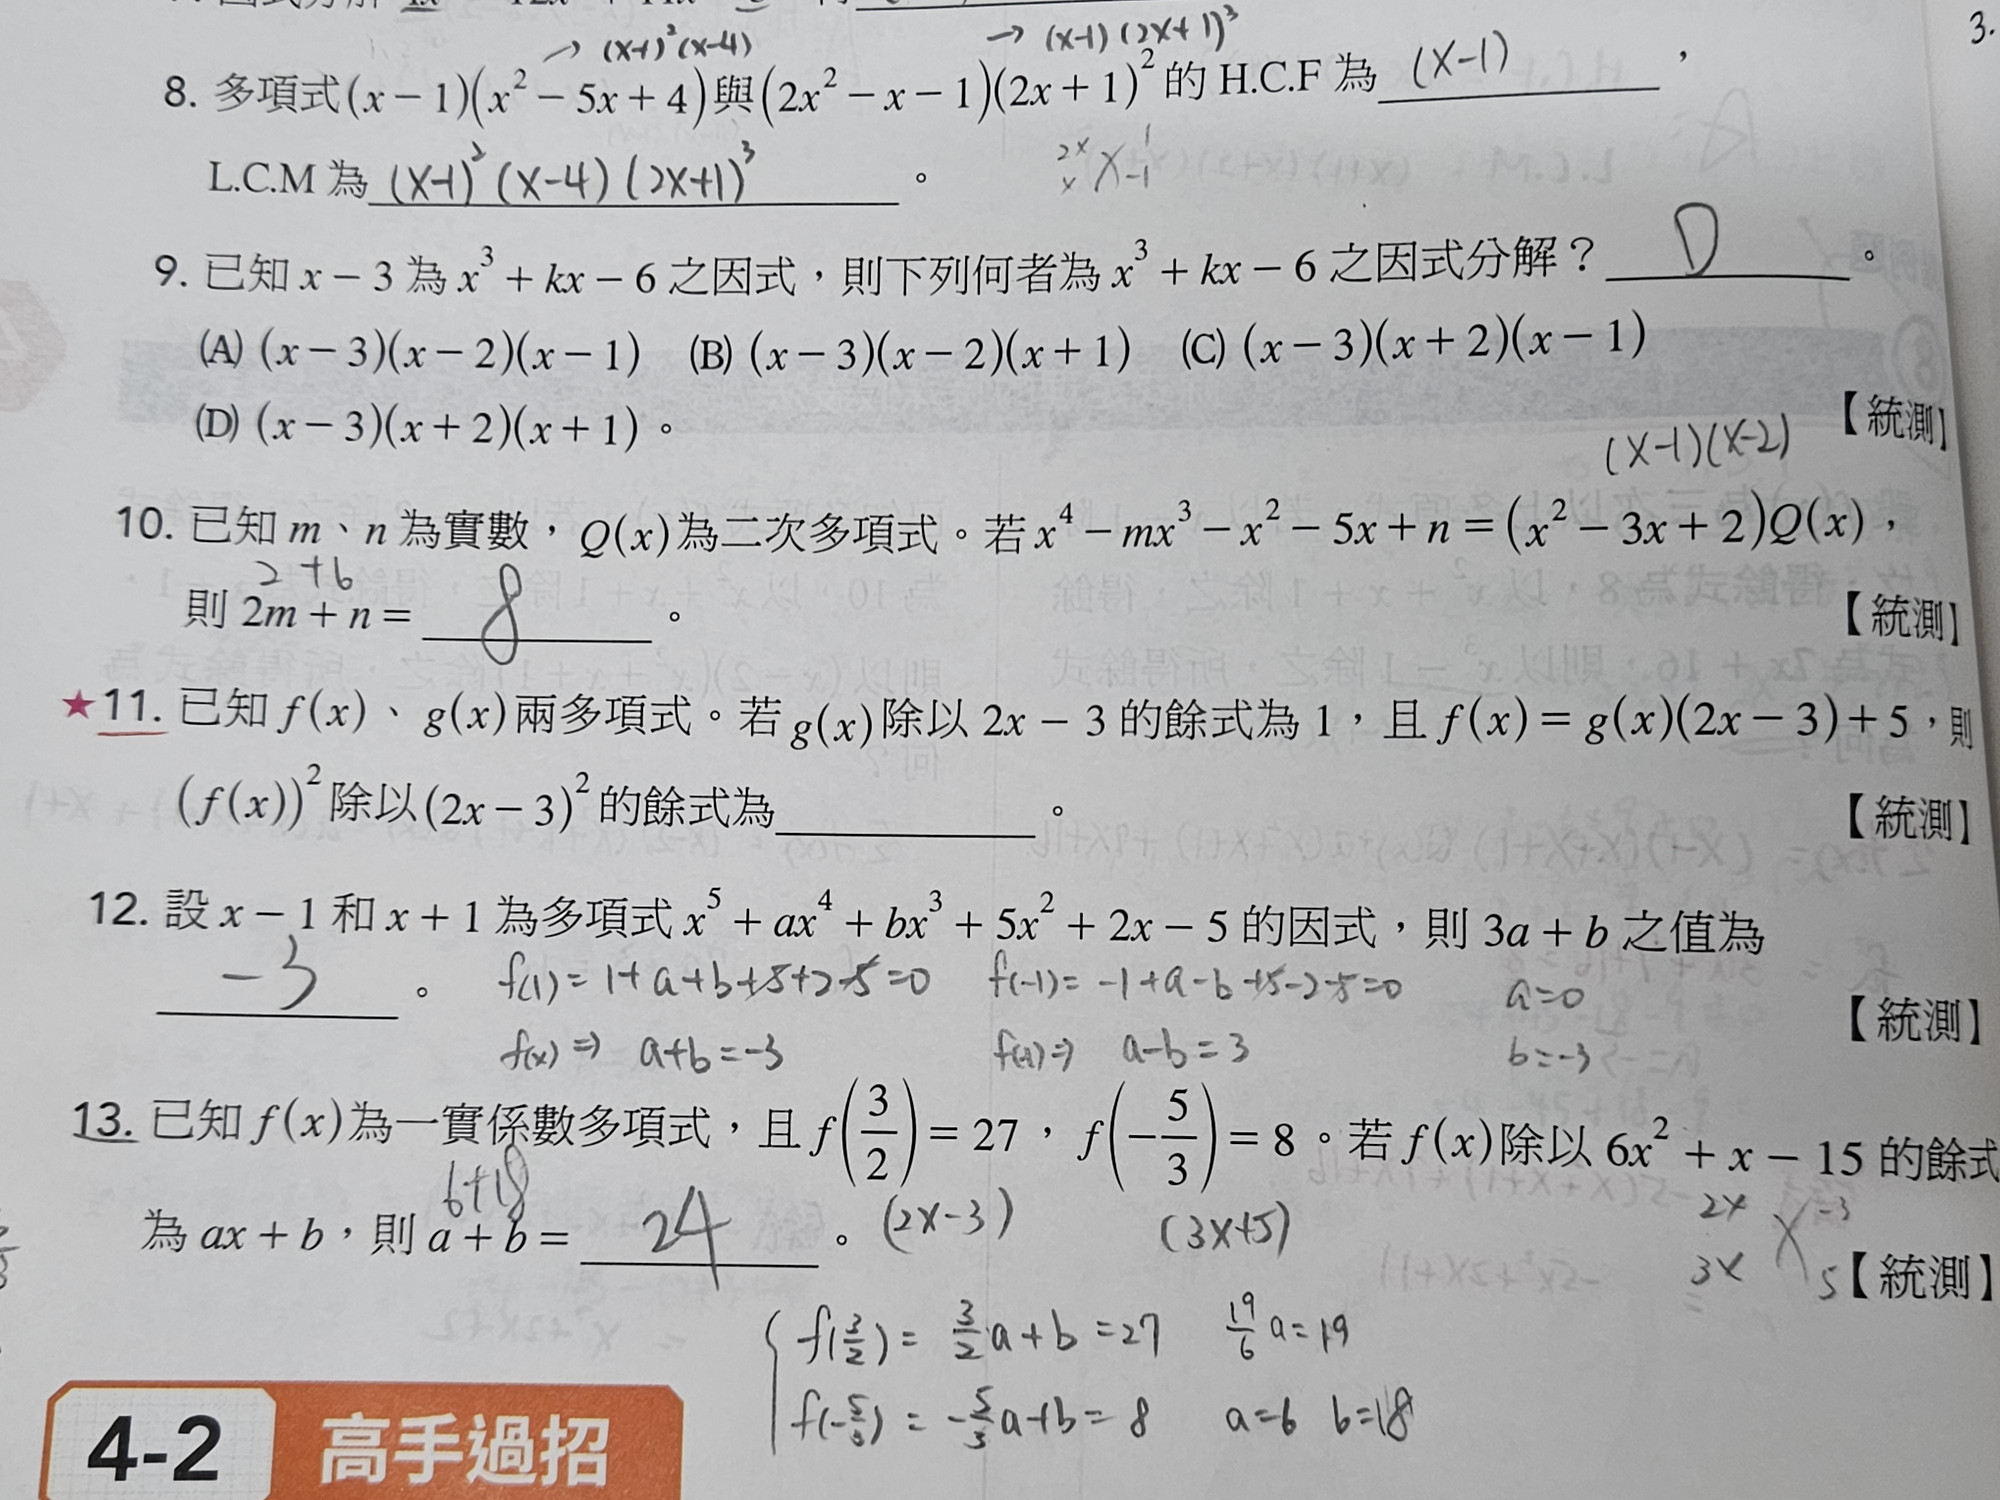 → (x-1)²(x-4) → (x-1)(2x+1)³
3.
8. 多項式(x－1)(x²－5x＋4)與(2x²－x－1)(2x＋1)²的 H.C.F 為 (x-1) ，
L.C.M 為 (x-1)²(x-4)(2x+1)³ 。
2x 1
x -1
9. 已知 x－3 為 x³＋kx－6 之因式，則下列何者為 x³＋kx－6 之因式分解？ D 。
(A) (x－3)(x－2)(x－1) (B) (x－3)(x－2)(x＋1) (C) (x－3)(x＋2)(x－1)
(D) (x－3)(x＋2)(x＋1)。 【統測】
(x-1)(x-2)
10. 已知 m、n 為實數，Q(x)為二次多項式。若 x⁴－mx³－x²－5x＋n＝(x²－3x＋2)Q(x)，
2 +6
則 2m＋n＝ 8 。 【統測】
★11. 已知 f(x)、g(x)兩多項式。若 g(x)除以 2x－3 的餘式為 1，且 f(x)＝g(x)(2x－3)＋5，則
(f(x))²除以(2x－3)²的餘式為 。 【統測】
12. 設 x－1 和 x＋1 為多項式 x⁵＋ax⁴＋bx³＋5x²＋2x－5 的因式，則 3a＋b 之值為
-3 。 f(1)=1+a+b+5+2-5=0 f(-1)=-1+a-b+5-2-5=0 a=0 【統測】
f(x)⇒ a+b=-3 f(-1)⇒ a-b=3 b=-3
13. 已知 f(x)為一實係數多項式，且 f(3/2)＝27，f(－5/3)＝8。若 f(x)除以 6x²＋x－15 的餘式
6+18
為 ax＋b，則 a＋b＝ 24 。 (2x-3) (3x+5) 【統測】
2x -3
3x 5
f(3/2)= 3/2a+b=27 19/6a=19
f(-5/3)= -5/3a+b=8 a=6 b=18
4-2 高手過招